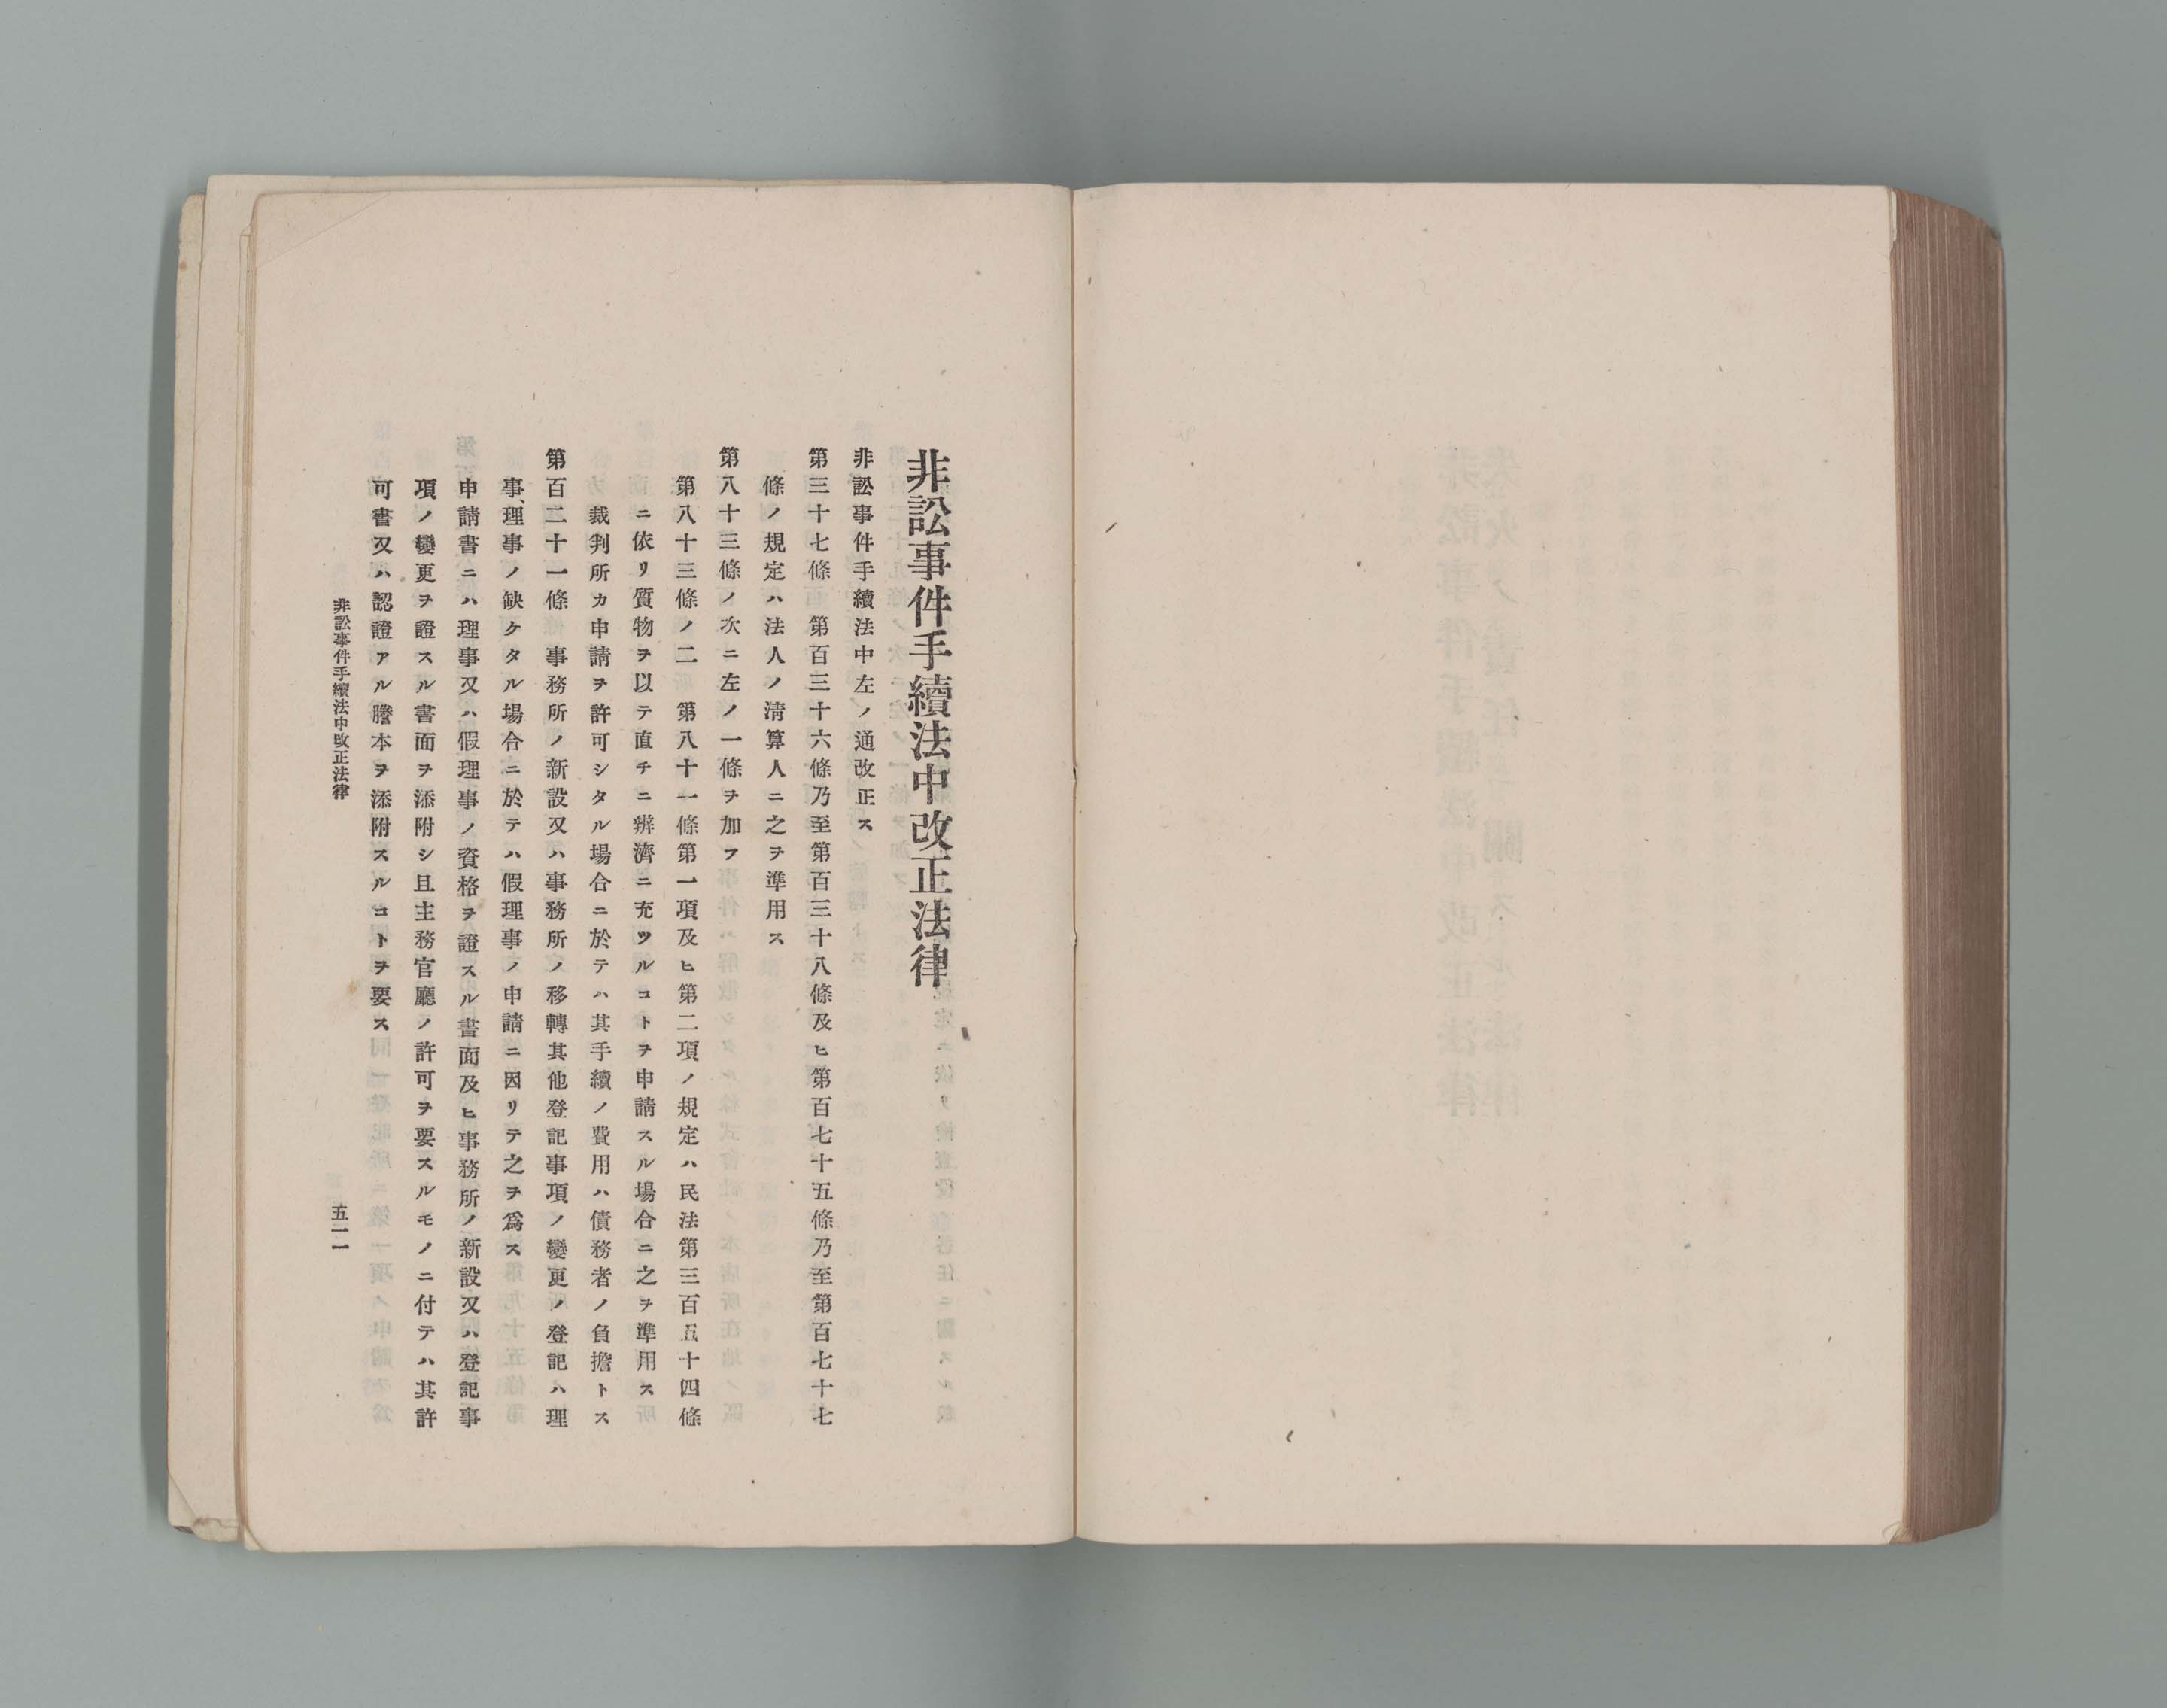 非訟事件手續法中改正法律
非訟事件手續法中左ノ通改正ス
第三十七條 第百三十六條乃至第百三十八條及ヒ第百七十五條乃至第百七十七
條ノ規定ハ法人ノ淸算人ニ之ヲ準用ス
第八十三條ノ次ニ左ノ一條ヲ加フ
第八十三條ノ二 第八十一條第一項及ヒ第二項ノ規定ハ民法第三百五十四條
ニ依リ質物ヲ以テ直チニ辨濟ニ充ツルコトヲ申請スル場合ニ之ヲ準用ス
裁判所カ申請ヲ許可シタル場合ニ於テハ其手續ノ費用ハ債務者ノ負擔トス
第百二十一條 事務所ノ新設又ハ事務所ノ移轉其他登記事項ノ變更ノ登記ハ理
事、理事ノ缺ケタル場合ニ於テハ假理事ノ申請ニ因リテ之ヲ爲ス
申請書ニハ理事又ハ假理事ノ資格ヲ證スル書面及ヒ事務所ノ新設又ハ登記事
項ノ變更ヲ證スル書面ヲ添附シ且主務官廳ノ許可ヲ要スルモノニ付テハ其許
可書又ハ認證アル謄本ヲ添附スルコトヲ要ス
非訟事件手續法中改正法律
五一一